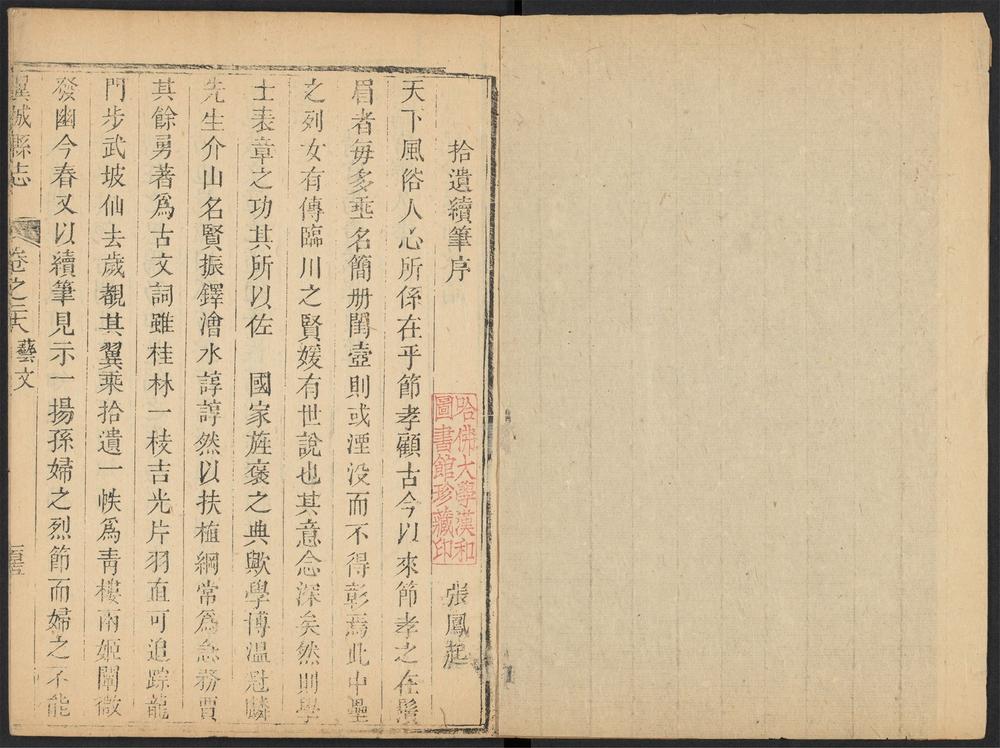 拾遺續筆序
張鳳起
哈佛大學漢和
圖書館珍藏印
天下風俗人心所係在乎節孝顧古今以來節孝之在鬚
眉者每多垂名簡册閨壼則或湮没而不得彰焉此中壘
之列女有傳臨川之賢媛有世說也其意念深矣然則學
士表章之功其所以佐 國家旌褒之典歟學博溫冠麟
先生介山名賢振鐸澮水諄諄然以扶植綱常爲急務賈
其餘勇著爲古文詞雖桂林一枝吉光片羽直可追踪龍
門步武坡仙去歲覩其翼乘拾遺一帙爲靑樓兩姬闡微
發幽今春又以續筆見示一揚孫婦之烈節而婦之不能
翼城縣志
卷之二八
藝文